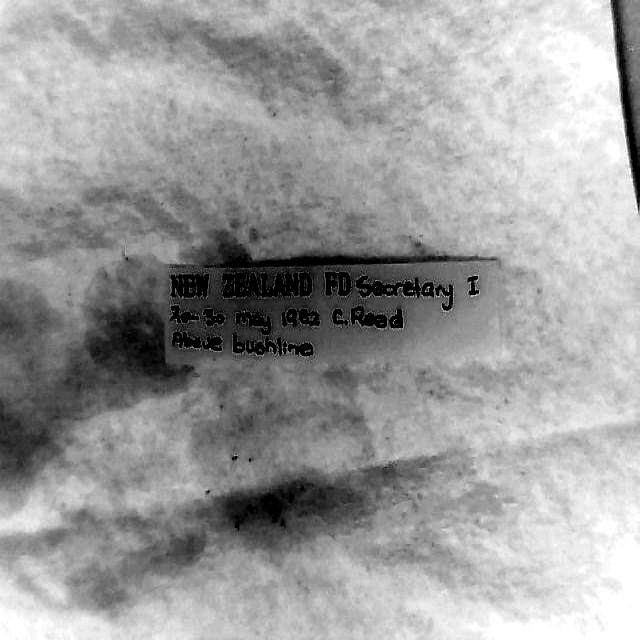 NEW ZEALAND FD Secretary I
20-30 May 1982 C. Reed
Above bushline